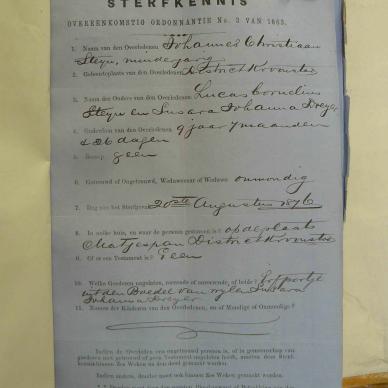 STERFKENNIS
OVEREENKOMSTIG ORDONNANTIE No. 3 VAN 1863.
1. Naam van den Overledenen Johannes Christiaan
Steyn, minderjarig
2. Geboorteplaats van den Overledenen District Kroonstad
3. Namen der Ouders van den Overledenen Lucas Cornelius
Steyn en Susara Johanna Dreyer
4. Ouderdom van den Overledenen 9 jaar 7 maanden
& 26 dagen
5. Beroep geen
6. Getrouwd of Ongetrouwd, Weduwenaar of Weduwe onmondig
7. Dag van het Sterfgeval 20ste Augustus 1876
8. In welke huis, en waar de persoon gestorven is? op de plaats
Matjespan District Kroonstad
9. Of er een Testament is? Geen
10. Welke Goederen nagelaten, roerende, of onroerende, of beide? Erfportje
uit den Boedel van wylen Susara
Johanna Dreyer
11. Namen der Kinderen van den Overledenen, en of Mondige of Onmondige?
Indien de Overleden een ongetrouwd persoon is, of in gemeenschap van